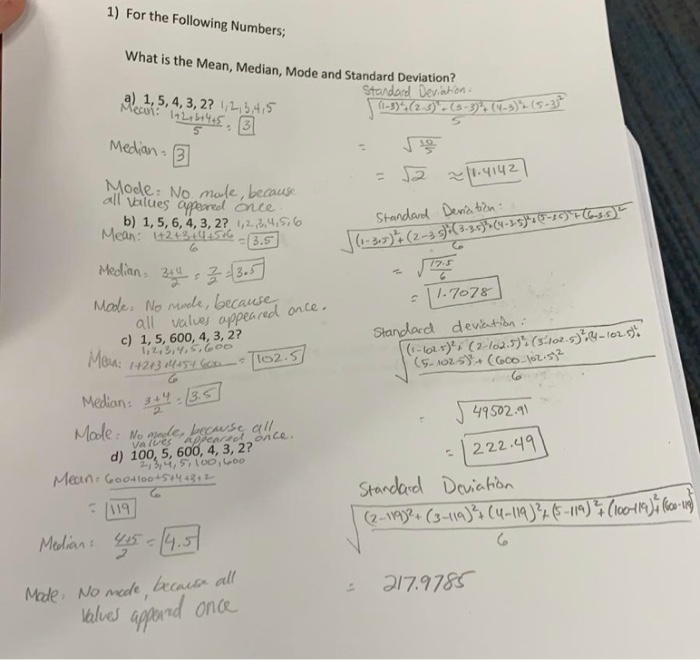 1) For the Following Numbers;
What is the Mean, Median, Mode and Standard Deviation?
a) 1, 5, 4, 3, 2? 1,2,3,4,5
Mean: 1+2+3+4+5 / 5 = 3
Median = 3
Mode: No mode, because
all values appeared once
Standard Deviation:
√((1-3)²+(2-3)²+(3-3)²+(4-3)²+(5-3)² / 5)
= √(10/5)
= √2 ≈ 1.4142
b) 1, 5, 6, 4, 3, 2? 1,2,3,4,5,6
Mean: 1+2+3+4+5+6 / 6 = 3.5
Median: 3+4 / 2 = 7/2 = 3.5
Mode: No mode, because
all values appeared once.
Standard Deviation:
√((1-3.5)²+(2-3.5)²+(3-3.5)²+(4-3.5)²+(5-3.5)²+(6-3.5)² / 6)
= √(17.5/6)
= 1.7078
c) 1, 5, 600, 4, 3, 2?
1,2,3,4,5,600
Mean: 1+2+3+4+5+600 / 6 = 102.5
Median: 3+4 / 2 = 3.5
Mode: No mode, because all
values appeared once.
Standard deviation:
√((1-102.5)²+(2-102.5)²+(3-102.5)²+(4-102.5)²+
(5-102.5)²+(600-102.5)² / 6)
= √49502.91
= 222.49
d) 100, 5, 600, 4, 3, 2?
2,3,4,5,100,600
Mean: 600+100+5+4+3+2 / 6
= 119
Median: 4+5 / 2 = 4.5
Mode: No mode, because all
values appeared once
Standard Deviation
√((2-119)²+(3-119)²+(4-119)²+(5-119)²+(100-119)²+(600-119)² / 6)
= 217.9785